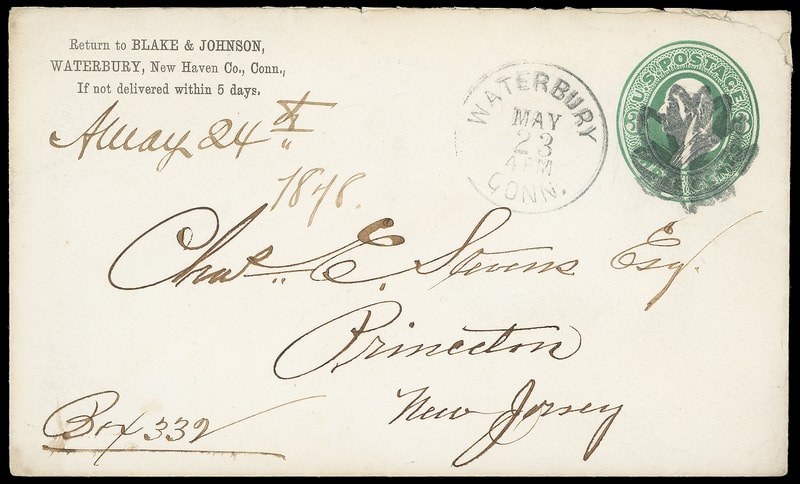 Return to BLAKE & JOHNSON,
WATERBURY, New Haven Co., Conn.,
If not delivered within 5 days.
May 24th
1878.
WATERBURY
MAY
23
4 PM
CONN.
U.S. POSTAGE
3 3
Chas. E. Stevens Esq.
Princeton
New Jersey
Box 332